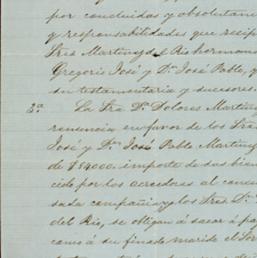 por concluidas y absolutam
y responsabilidades que recip
Sres Martinez del Rio hermanos
Gregorio José y Dn José Pablo, y
su testamentaria y sucesores.
3a. La Sra Da Dolores Martin
renuncia en favor de los Sres
José y Dn José Pablo Martin
de $84000. importe de sus bien
cido por los acreedores al
compañia y los Sres Dn
del Rio, se obligan á sacar á pa
á su finado marido el Sor